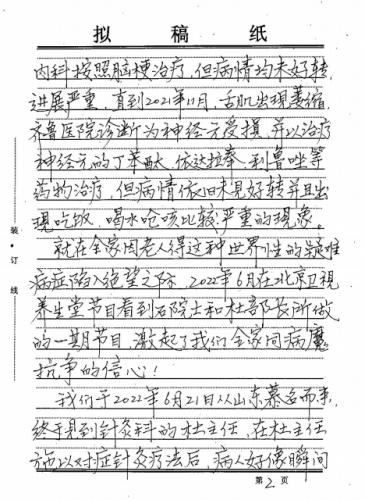 拟稿纸
内科按照脑梗治疗，但病情均未好转，
进展严重，直到2021年11月，舌肌出现萎缩，
齐鲁医院诊断为神经元受损，并以治疗
神经元的丁苯酞、依达拉奉、利鲁唑等
药物治疗，但病情依旧未见好转并且出
现吃饭、喝水呛咳比较严重的现象。
就在全家因老人得这种世界性的疑难
病症陷入绝望之际，2022年6月在北京卫视
养生堂节目看到石院士和杜部长所做
的一期节目，激起了我们全家同病魔
抗争的信心！
我们于2022年6月21日从山东慕名而来，
终于见到针灸科的杜主任，在杜主任
施以对症针灸疗法后，病人好像瞬间
装·订线
第2页